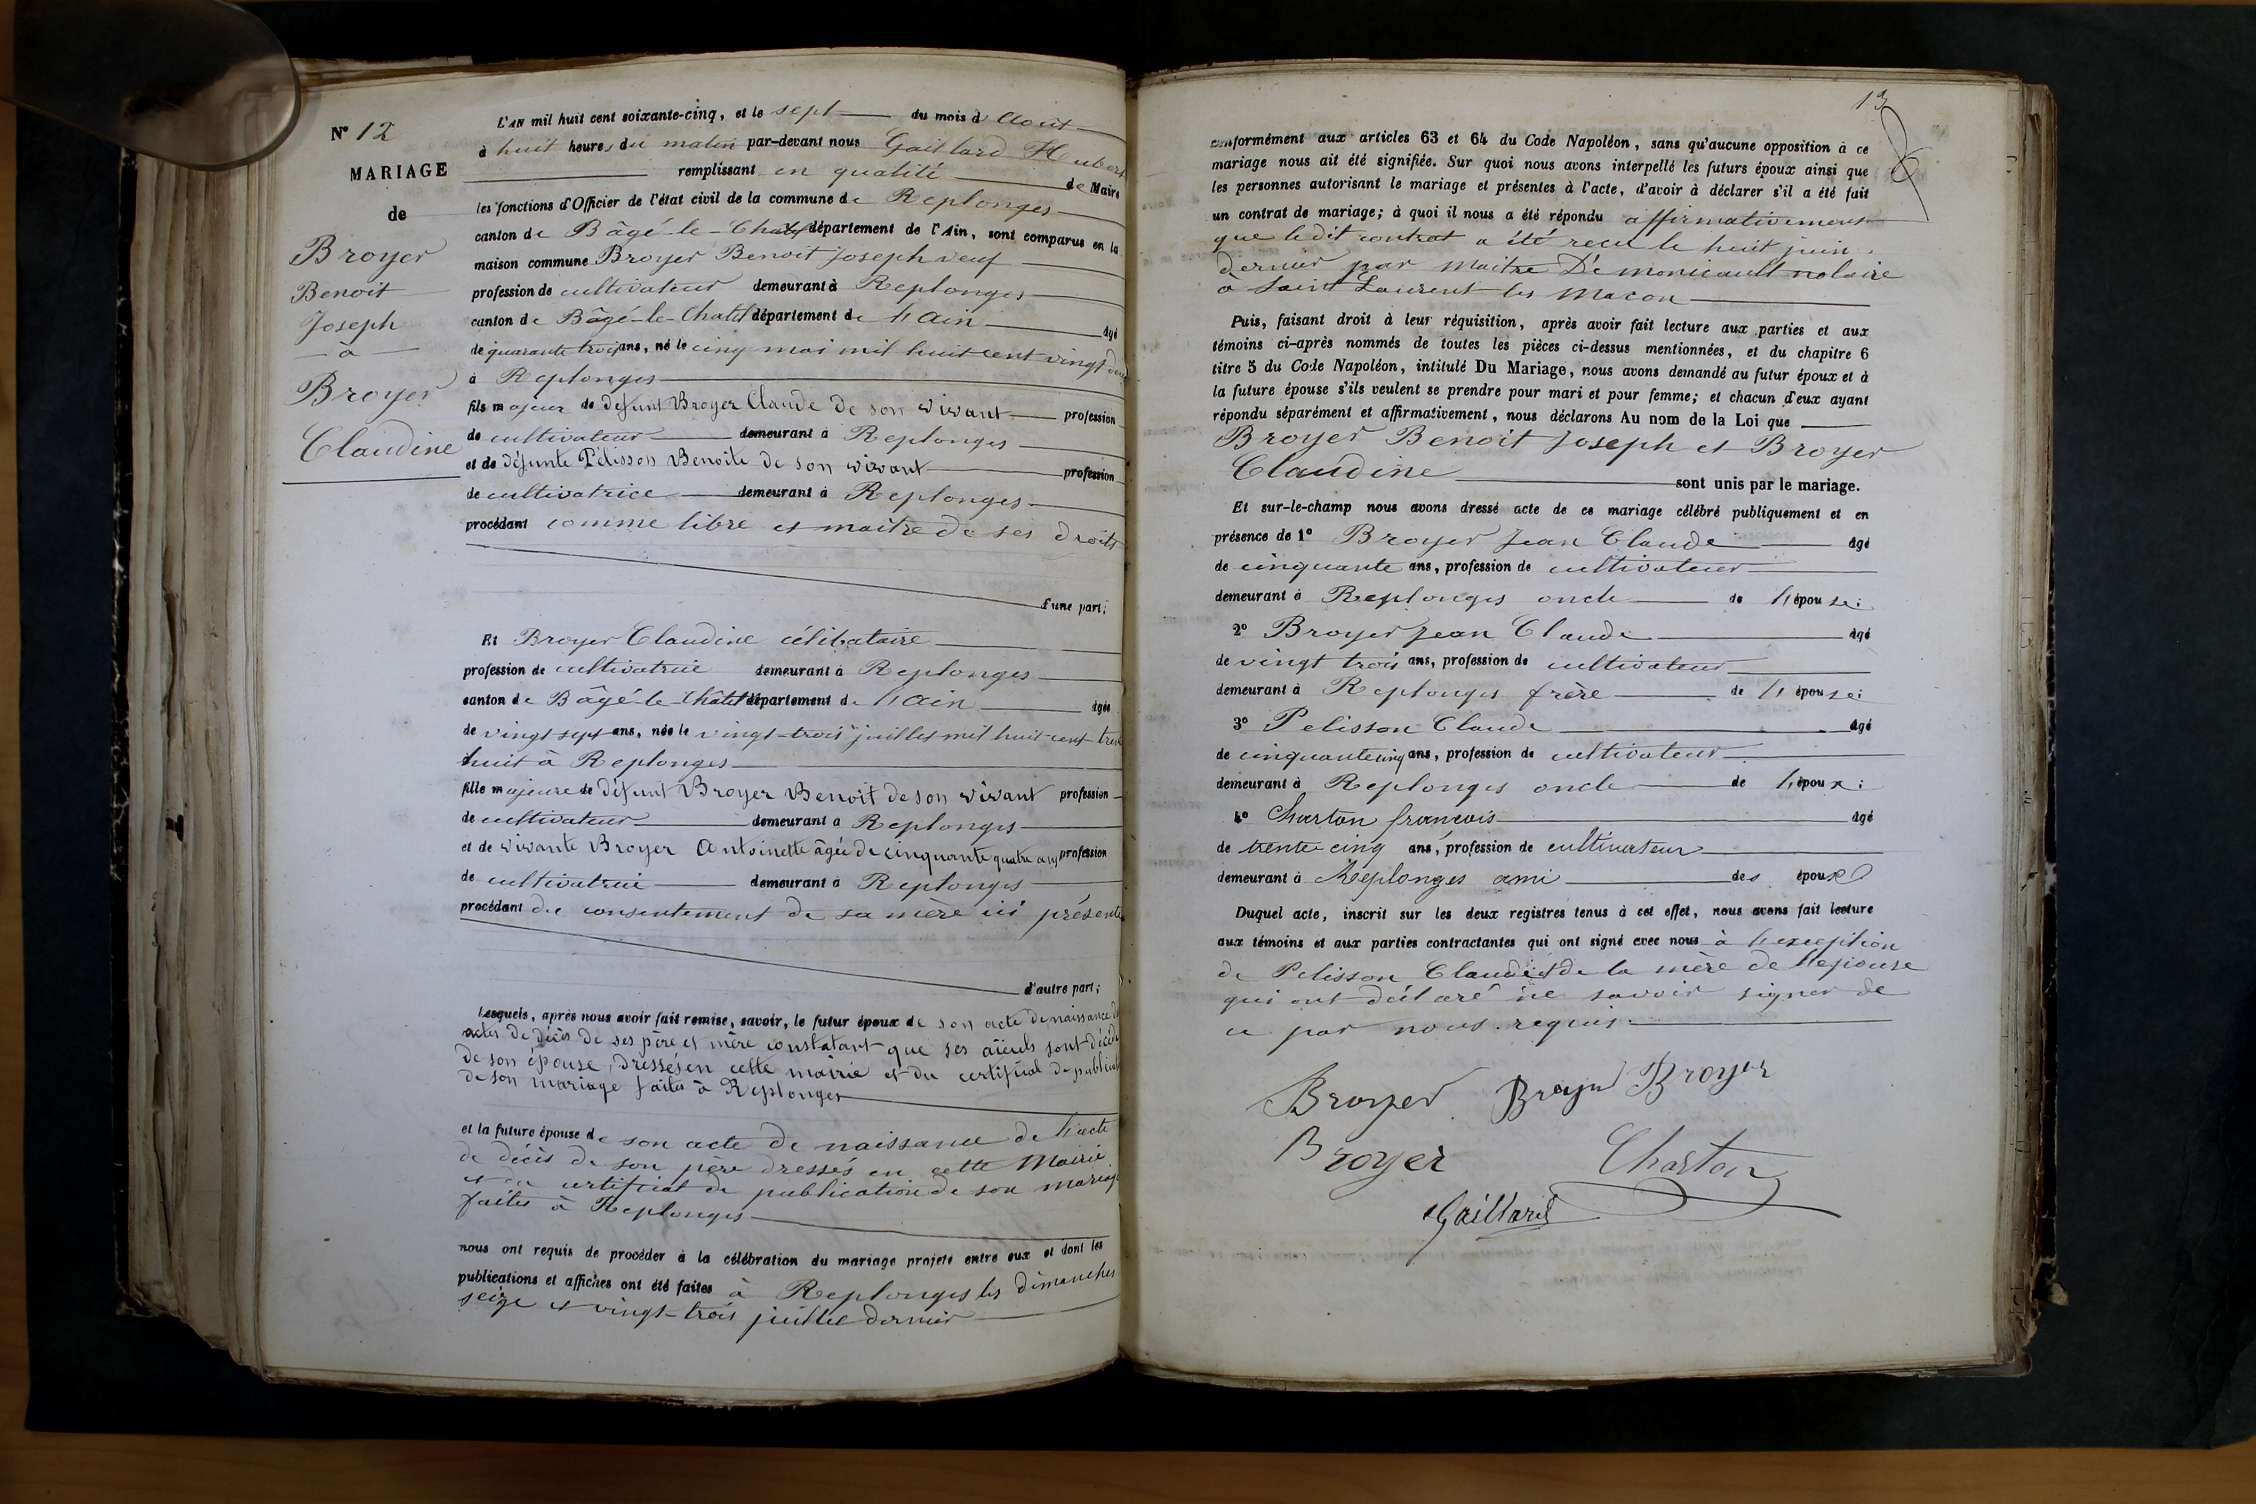 N° 12
MARIAGE
de
Broyer
Benoit
Joseph
à
Broyer
Claudine
L'AN mil huit cent soixante-cinq, et le sept du mois d'Août
à huit heures du matin par-devant nous Gaillard Hubert
remplissant en qualité de Maire
les fonctions d'Officier de l'état civil de la commune de Replonges
canton de Bâgé-le-Chatel département de l'Ain, sont comparus en la
maison commune Broyer Benoit Joseph veuf
profession de cultivateur demeurant à Replonges
canton de Bâgé-le-Chatel département de l'Ain âgé
de quarante trois ans, né le cinq mai mil huit cent vingt deux
à Replonges
fils majeur de défunt Broyer Claude de son vivant profession
de cultivateur demeurant à Replonges
et de défunte Pélisson Benoite de son vivant profession
de cultivatrice demeurant à Replonges
procédant comme libre et maitre de ses droits
d'une part;
Et Broyer Claudine célibataire
profession de cultivatrice demeurant à Replonges
canton de Bâgé-le-Châtel département de l'Ain âgée
de vingt sept ans, née le vingt-trois juillet mil huit-cent-trente
huit à Replonges
fille majeure de défunt Broyer Benoit de son vivant profession
de cultivateur demeurant à Replonges
et de vivante Broyer Antoinette âgée de cinquante quatre ans profession
de cultivatrice demeurant à Replonges
procédant du consentement de sa mère ici présente
d'autre part;
Lesquels, après nous avoir fait remise, savoir, le futur époux de son acte de naissance
actes de décès de ses père et mère constatant que ses aïeuls sont
de son épouse, dressés en cette mairie et du certificat de
de son mariage faites à Replonges
et la future épouse de son acte de naissance de l'acte
de décès de son père dressés en cette Mairie
et du certificat de publication de son mariage
faites à Replonges
nous ont requis de procéder à la célébration du mariage projeté entre eux et dont les
publications et affiches ont été faites à Replonges les dimanches
seize et vingt-trois juillet dernier
13
conformément aux articles 63 et 64 du Code Napoléon, sans qu'aucune opposition à ce
mariage nous ait été signifiée. Sur quoi nous avons interpellé les futurs époux ainsi que
les personnes autorisant le mariage et présentes à l'acte, d'avoir à déclarer s'il a été fait
un contrat de mariage; à quoi il nous a été répondu affirmativement
que ledit contrat a été reçu le huit juin
dernier par Maitre De monicault notaire
à Saint Laurent les Macon
Puis, faisant droit à leur réquisition, après avoir fait lecture aux parties et aux
témoins ci-après nommés de toutes les pièces ci-dessus mentionnées, et du chapitre 6
titre 5 du Code Napoléon, intitulé Du Mariage, nous avons demandé au futur époux et à
la future épouse s'ils veulent se prendre pour mari et pour femme; et chacun d'eux ayant
répondu séparément et affirmativement, nous déclarons Au nom de la Loi que
Broyer Benoit Joseph et Broyer
Claudine sont unis par le mariage.
Et sur-le-champ nous avons dressé acte de ce mariage célébré publiquement et en
présence de 1° Broyer Jean Claude âgé
de cinquante ans, profession de cultivateur
demeurant à Replonges oncle de l'épouse;
2° Broyer Jean Claude âgé
de vingt trois ans, profession de cultivateur
demeurant à Replonges frère de l'épouse;
3° Pelisson Claude âgé
de cinquante cinq ans, profession de cultivateur
demeurant à Replonges oncle de l'époux;
4° Charton françois âgé
de trente cinq ans, profession de cultivateur
demeurant à Replonges ami des époux
Duquel acte, inscrit sur les deux registres tenus à cet effet, nous avons fait lecture
aux témoins et aux parties contractantes qui ont signé avec nous à l'exception
de Pelisson Claude et de la mère de l'épouse
qui ont déclaré ne savoir signer de
ce par nous requis.
Broyer Broyer Broyer
Broyer Charton
Gaillard